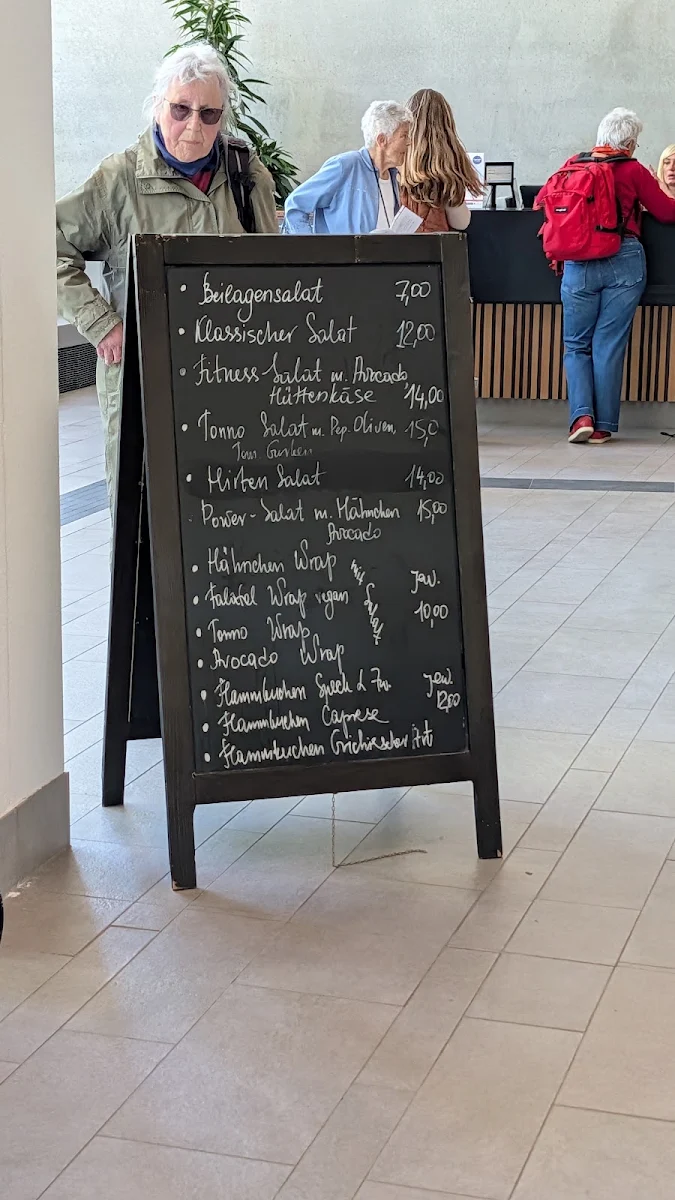 • Beilagensalat 7,00
• Klassischer Salat 12,00
• Fitness-Salat m. Avocado
Hüttenkäse 14,00
• Tonno Salat m. Pep. Oliven 15,0
Tom. Gurken
• Hirten Salat 14,00
Power-Salat m. Hähnchen 15,00
Avocado
• Hähnchen Wrap mit
• Falafel Wrap vegan Salat Jew. 10,00
• Tonno Wrap
• Avocado Wrap
• Flammkuchen Speck & Zw. Jew. 12,00
• Flammkuchen Caprese
• Flammkuchen Griechischer Art